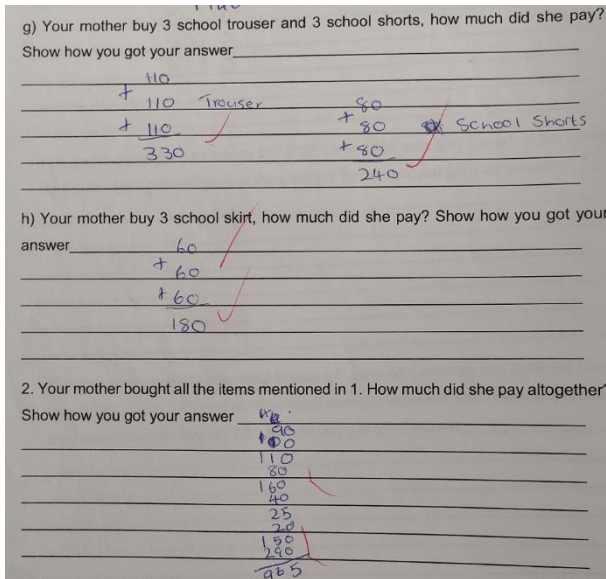 g) Your mother buy 3 school trouser and 3 school shorts, how much did she pay?
Show how you got your answer
110
+ 110 Trouser
+ 110
330
80
+ 80 School Shorts
+ 80
240
h) Your mother buy 3 school skirt, how much did she pay? Show how you got your
answer
60
+ 60
+ 60
180
2. Your mother bought all the items mentioned in 1. How much did she pay altogether
Show how you got your answer
90
110
80
160
40
25
20
150
290
965